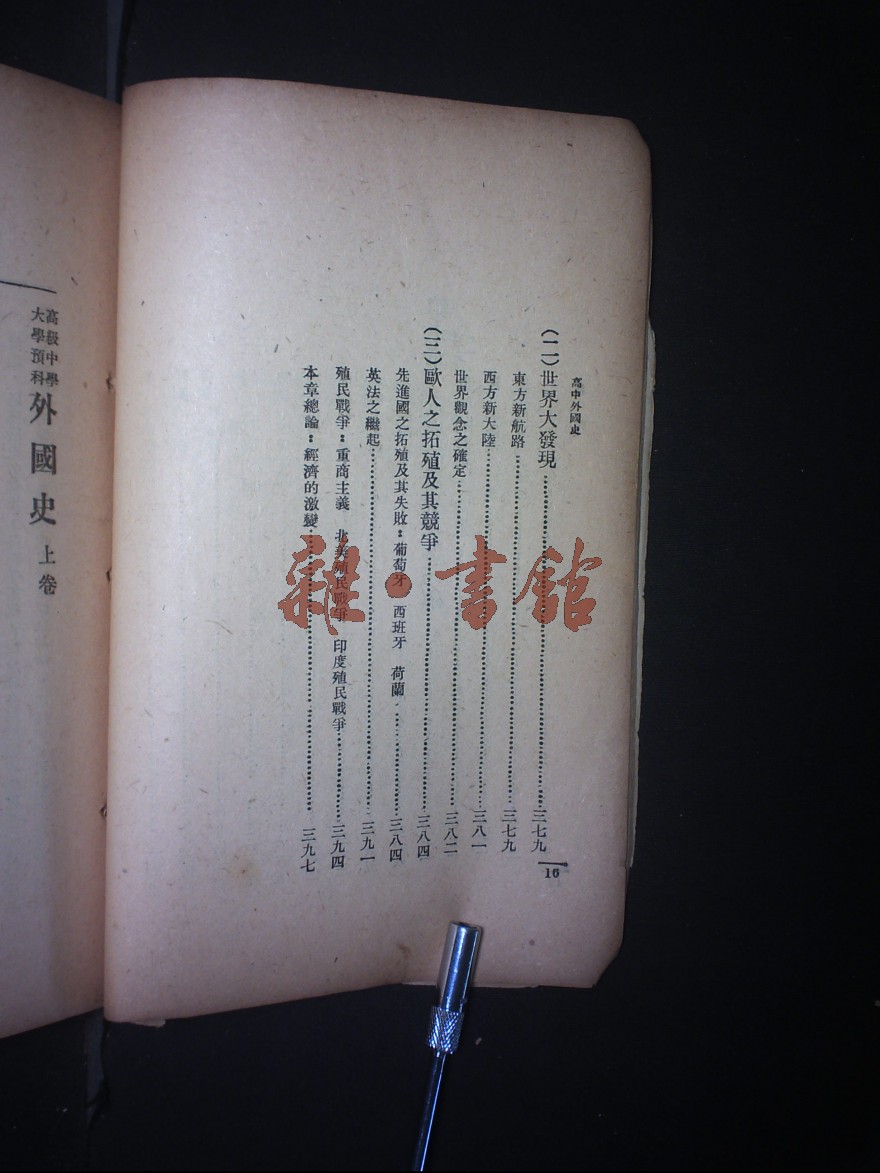 高中外國史
(二)世界大發現……三七九
東方新航路……三七九
西方新大陸……三八一
世界觀念之確定……三八二
(三)歐人之拓殖及其競爭……三八四
先進國之拓殖及其失敗：葡萄牙 西班牙 荷蘭……三八四
英法之繼起……三九一
殖民戰爭：重商主義 北美殖民戰爭 印度殖民戰爭……三九四
本章總論：經濟的激變……三九七
16
高級中學
大學預科
外國史 上卷
雜·書館